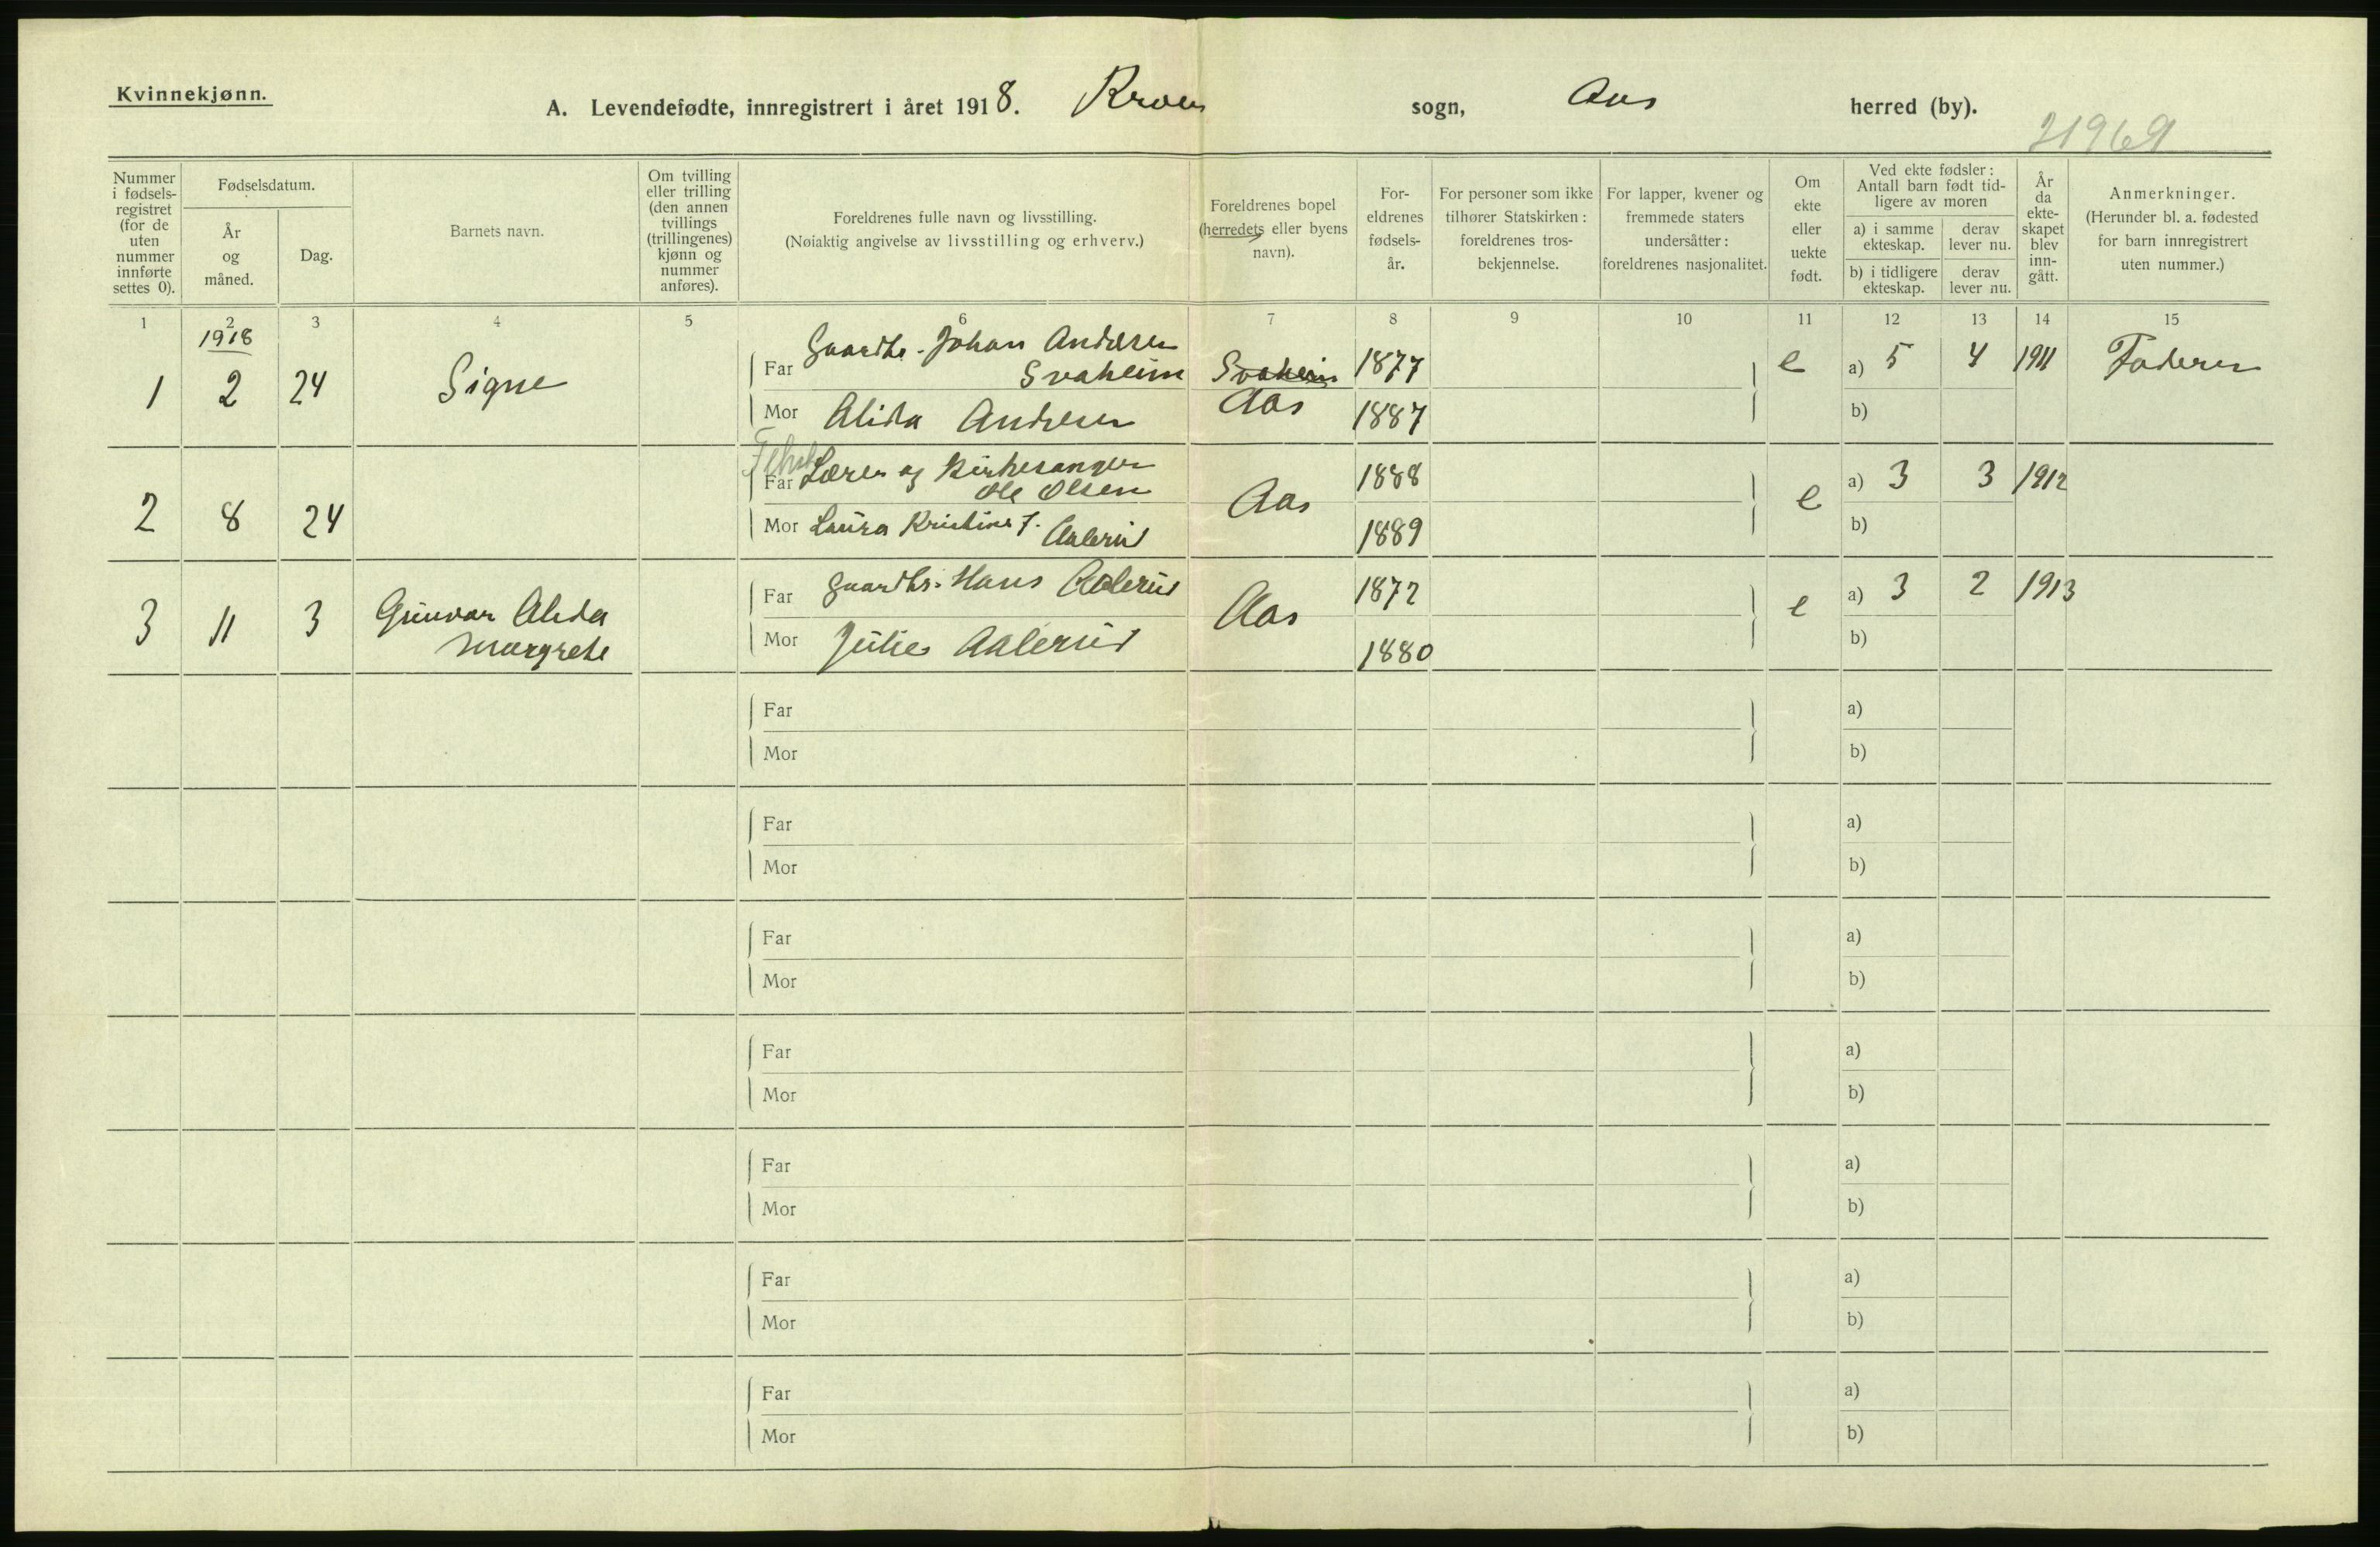 Kvinnekjønn.
A. Levendefødte, innregistrert i året 1918. Kroer sogn, Aas herred (by).
21969
Nummer i fødsels-registret (for de uten nummer innførte settes 0).
Fødselsdatum.
År og måned.
Dag.
Barnets navn.
Om tvilling eller trilling (den annen tvillings (trillingenes) kjønn og nummer anføres).
Foreldrenes fulle navn og livsstilling.
(Nøiaktig angivelse av livsstilling og erhverv.)
Foreldrenes bopel (herredets eller byens navn).
For-eldrenes fødsels-år.
For personer som ikke tilhører Statskirken: foreldrenes tros-bekjennelse.
For lapper, kvener og fremmede staters undersåtter: foreldrenes nasjonalitet.
Om ekte eller uekte født.
Ved ekte fødsler: Antall barn født tid-ligere av moren
a) i samme ekteskap.
derav lever nu.
b) i tidligere ekteskap.
derav lever nu.
År da ekte-skapet blev inn-gått.
Anmerkninger.
(Herunder bl. a. fødested for barn innregistrert uten nummer.)
1 2 3 4 5 6 7 8 9 10 11 12 13 14 15
1918
Far Gaardbr. Johan Andresen
Svaheim Svaheim 1877 e a) 5 4 1911 Faderen
1 2 24 Signe
Mor Alida Andresen Aas 1887 b)
Far Lærer og Kirkesanger
Ole Olsen 1888 a) 3 3 1912
2 8 24 Aas e
Mor Laura Kristine J. Aalerud 1889 b)
Far Gaardbr. Hans Aalerud 1872 a) 3 2 1913
3 11 3 Gunvor Alida Aas e
Margrete
Mor Julie Aalerud 1880 b)
Far a)
Mor b)
Far a)
Mor b)
Far a)
Mor b)
Far a)
Mor b)
Far a)
Mor b)
Far a)
Mor b)
Far a)
Mor b)